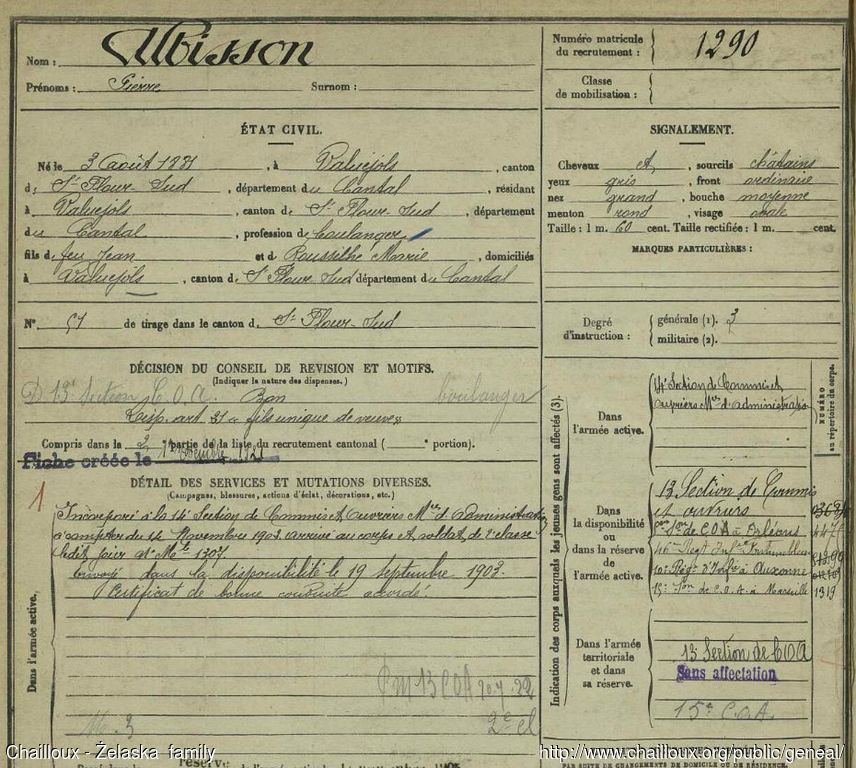 Nom : Albisson
Prénoms : Pierre Surnom :
Numéro matricule du recrutement : 1290
Classe de mobilisation :
ÉTAT CIVIL.
Né le 3 Août 1881, à Valuéjols, canton
de St Flour Sud, département du Cantal, résidant
à Valuéjols, canton de St Flour Sud, département
du Cantal, profession de boulanger
fils de feu Jean et de Rousselhe Marie, domiciliés
à Valuéjols, canton de St Flour Sud département du Cantal
N° 51 de tirage dans le canton de St Flour Sud
SIGNALEMENT.
Cheveux et, sourcils châtains
yeux gris, front ordinaire
nez grand, bouche moyenne
menton rond, visage ovale
Taille : 1 m. 60 cent. Taille rectifiée : 1 m. cent.
MARQUES PARTICULIÈRES :
Degré d'instruction : générale (1). 3
militaire (2).
DÉCISION DU CONSEIL DE REVISION ET MOTIFS.
(Indiquer la nature des dispenses.)
D. 13e Section C.O.A. Bon boulanger
Disp. art. 21 « fils unique de veuve »
Compris dans la 2e partie de la liste du recrutement cantonal ( e portion).
Fiche créée le
DÉTAIL DES SERVICES ET MUTATIONS DIVERSES.
(Campagnes, blessures, actions d'éclat, décorations, etc.)
1
Dans l'armée active.
Incorporé à la 14e Section de Commis et Ouvriers Mres d'administration
à compter du 14 Novembre 1902. arrivé au corps et soldat de 2e classe
ledit jour
Envoyé dans la disponibilité le 19 septembre 1903.
Certificat de bonne conduite accordé.
2e cl
Indication des corps auxquels les jeunes gens sont affectés (3).
NUMÉRO au répertoire du corps.
Dans l'armée active.
14e Section de Commis et
ouvriers Mres d'administration
Dans la disponibilité ou dans la réserve de l'armée active.
13e Section de Commis
et ouvriers
de C.O.A à Orléans
46e Régt Infie Fontainebleau
10e Régt d'Infie à Auxonne
15e Son de C.O.A. à Marseille 1319
Dans l'armée territoriale et dans sa réserve.
13e Section de COA
Sans affectation
15e C.O.A.
réserve
PAR SUITE DE CHANGEMENTS DE DOMICILE OU DE RÉSIDENCE.
Chailloux - Żelaska family
http://www.chailloux.org/public/geneal/